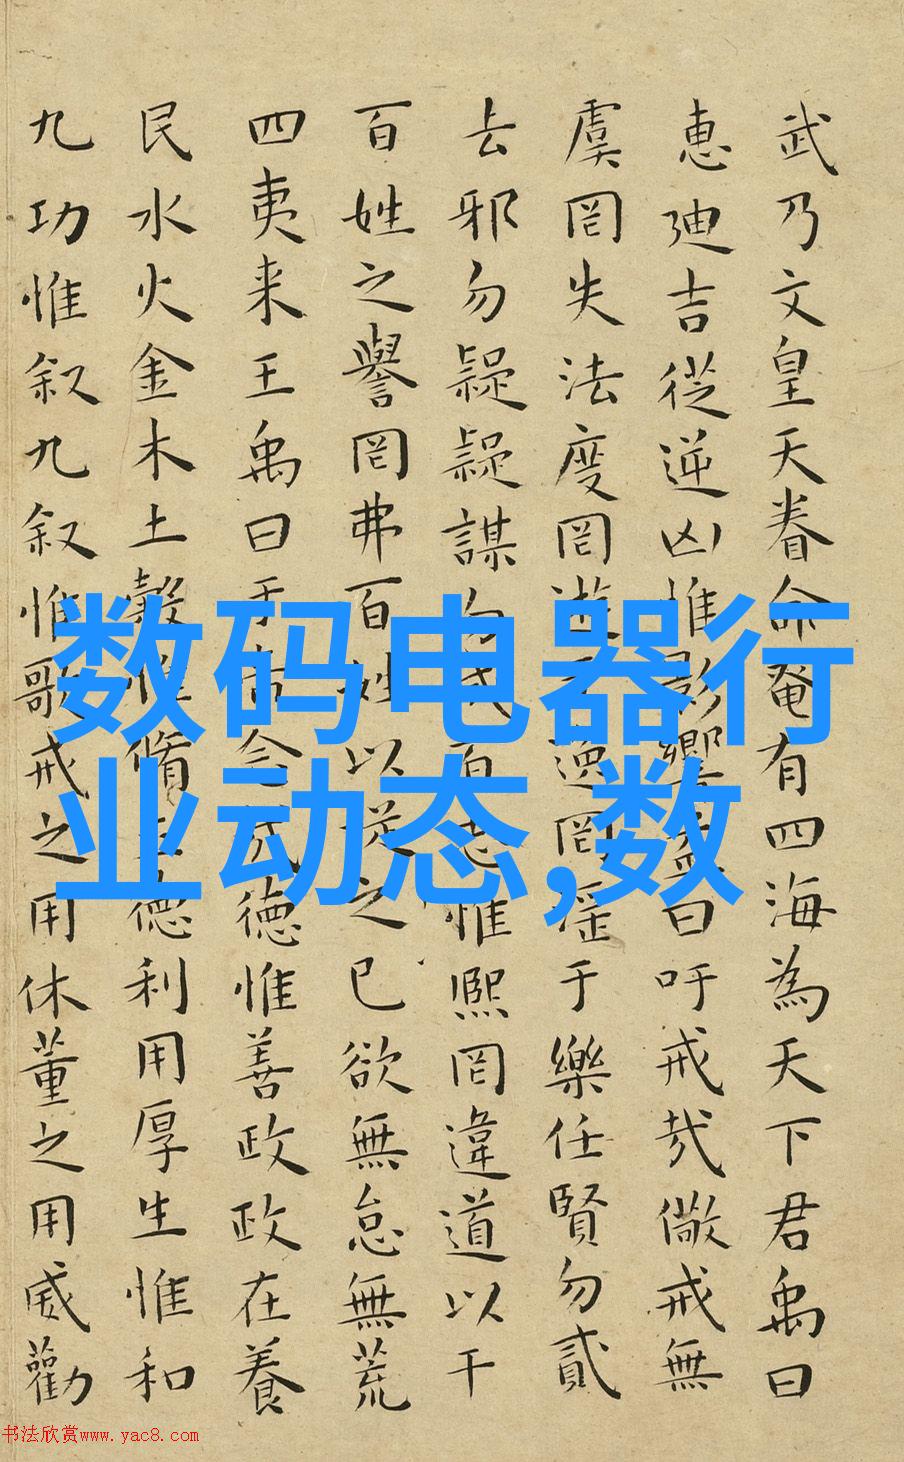 武乃文皇天眷命奄有四海為天下君禹曰
惠迪吉從逆凶惟影響益曰吁戒哉儆戒無
虞罔失法度罔遊于逸罔淫于樂任賢勿貳
去邪勿疑疑謀勿成百志惟熙罔違道以干
百姓之譽罔弗百姓以從之已欲無怠無荒
四夷来王禹曰于帝念哉德惟善政政在養
民水火金木土穀惟脩正德利用厚生惟和
九功惟叙九叙惟歌戒之用休董之用威勸
数码电器行
业动态,数
书法欣赏www.yac8.com